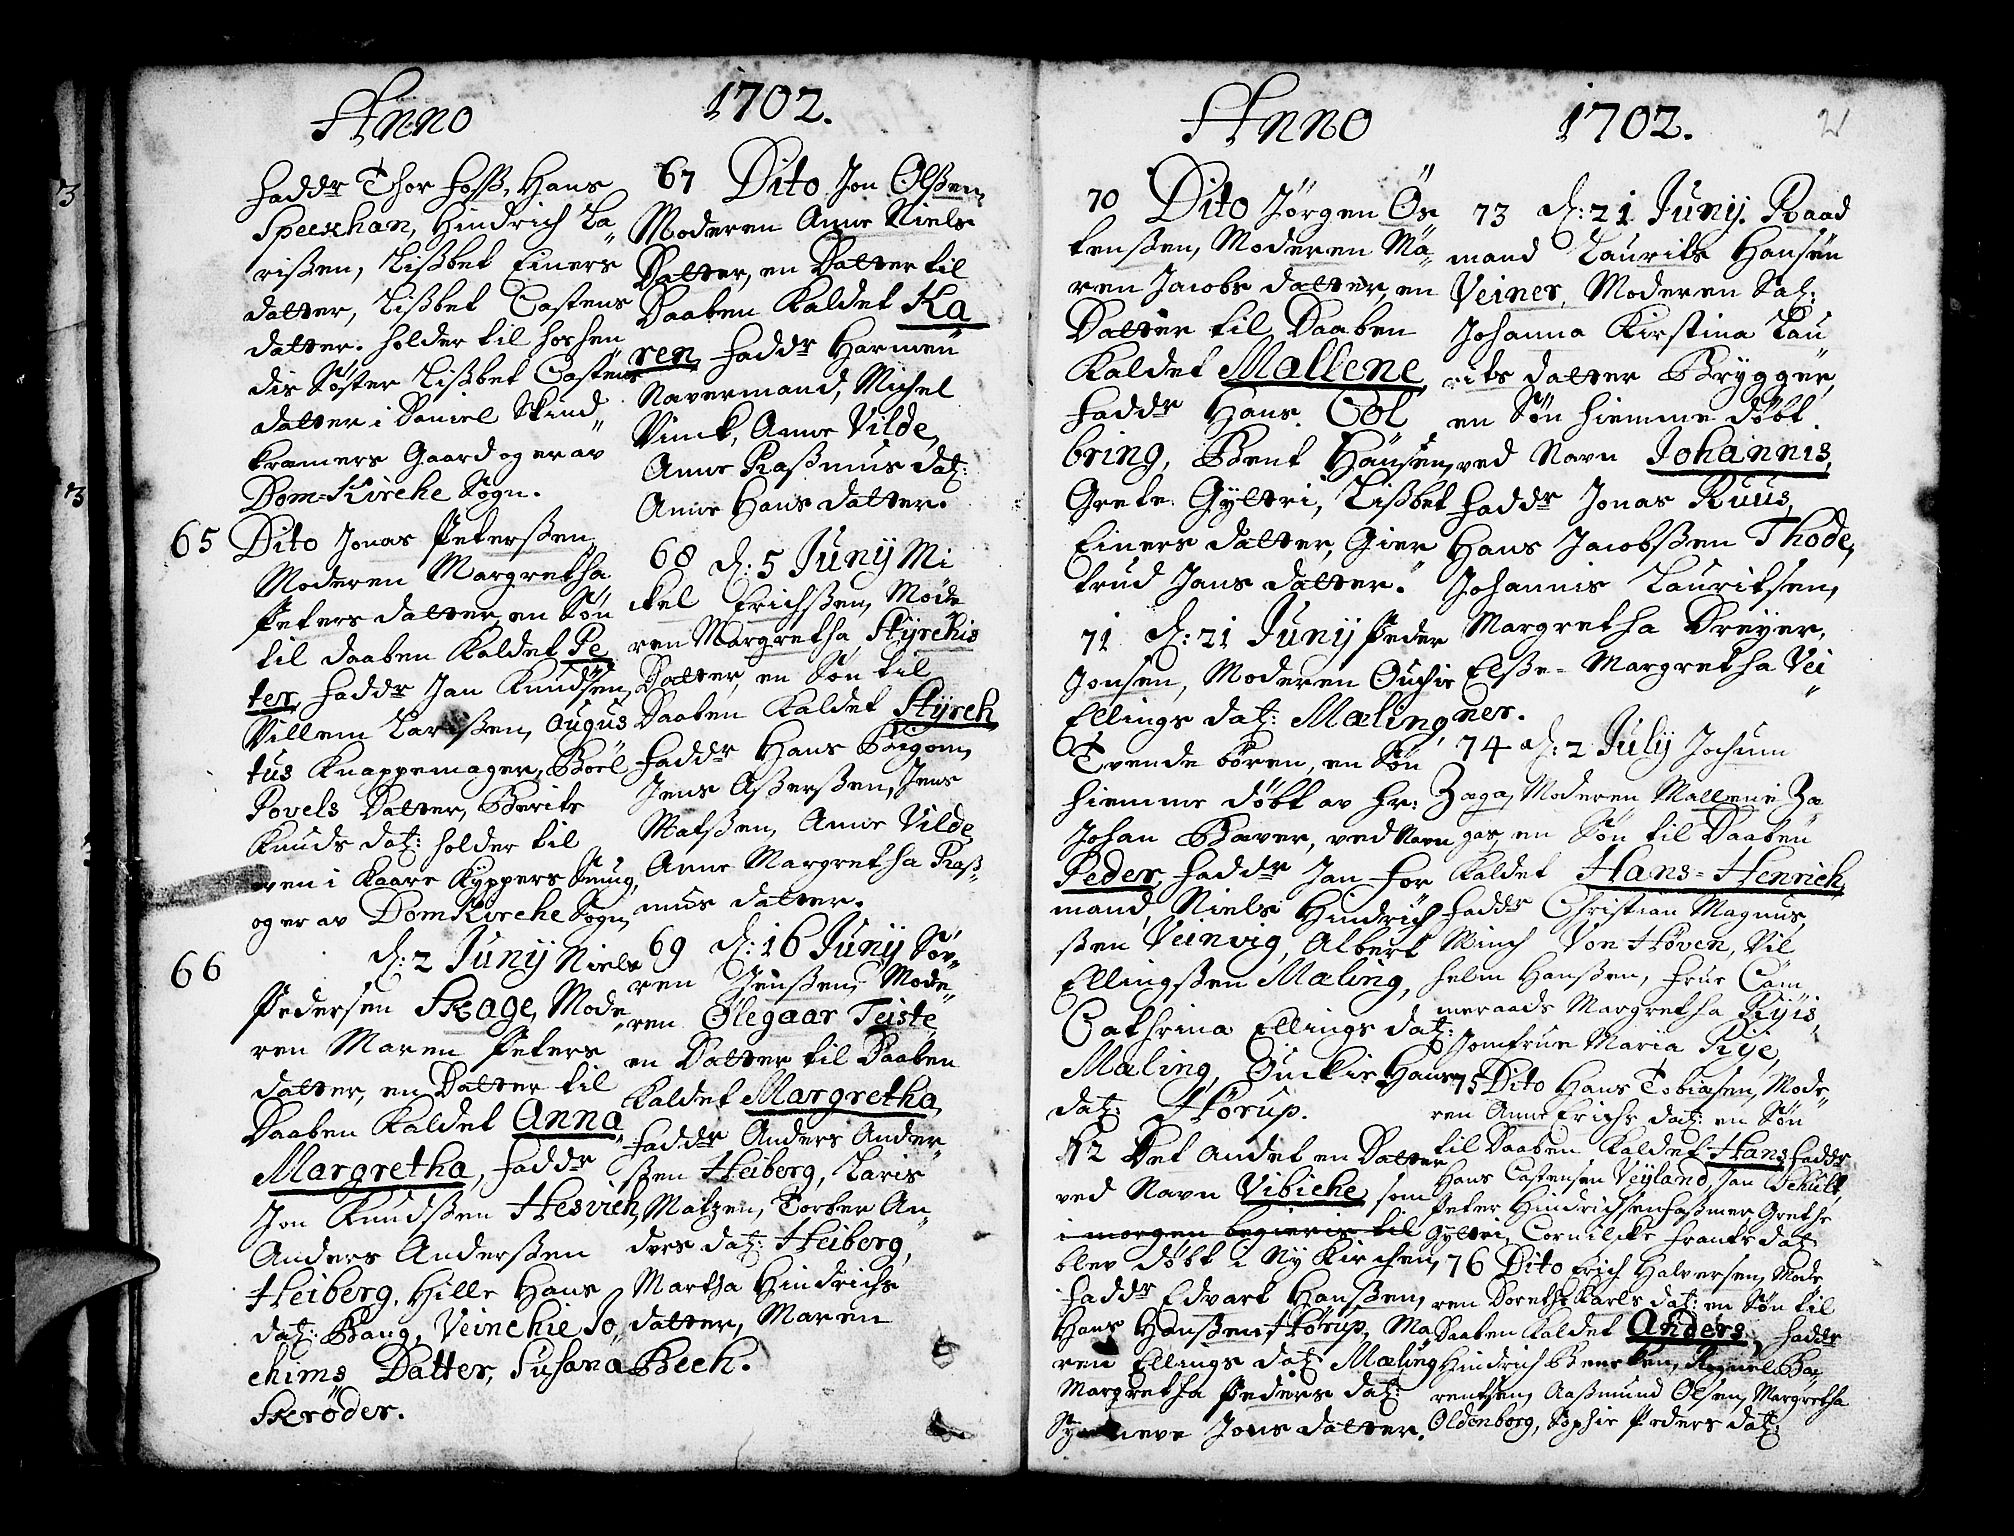 Anno 1702.
Faddr Thor Foss, Hans
Speckhan, Hindrich La„
rißen, Lißbet Einers
datter, Lißbet Castens
datter. holder til hos hen„
dis Søster Lißbet Castens
datter i Daniel Skind„
kramers Gaard og er av
Dom=Kirche Sogn.
65 Dito Jonas Peterßen,
Moderen Margretha
Peters datter, en Søn
til daaben Kaldet Pe
ter, Faddr Jan Knudsen,
Villem Larßen, Augus
tus Knappemager, Boel
Povels Datter, Berite
Knuds dat: holder til
oven i Kaare Kyppers Smug,
og er av DomKirche Sogn,
66 d: 2 Junij Niels
Pedersen Skage, Mode„
ren Maren Peters
datter, en Datter til
Daaben Kaldet Anna
Margretha, Faddr
Jon Knudßen Hesvich,
Anders Anderßen
Heiberg, Hille Hans
dat: Bang, Veinchie Jo„
chims Datter, Susana
Skrøder.
67 Dito Jon Olßen,
Moderen Anne Niels
Datter, en Datter til
Daaben Kaldet Ka
ren, Faddr Harmen
Navermand, Michel
Vinck, Anne Vilde,
Anne Raßmus dat:
Anne Hans datter.
68 d: 5 Junij Mi
ckel Erichßen, Mode
ren Margretha Styrchis
Datter, en Søn til
Daaben Kaldet Styrch
Faddr Hans Bigom,
Jens Aßerßen, Jens
Matßen, Anne Vilde,
Anne Margretha Raß„
mus datter.
69 d: 16 Junij Søv„
ren Jenßen, Mode„
ren Olegaar Teiste,
en Datter til Daaben
Kaldet Margretha,
Faddr Anders Ander„
ßen Heiberg, Laris
Matzen, Torber An„
ders dat: Heiberg,
Martha Hindrichs
datter, Maren
Bech.
Anno 1702. 21
70 Dito Jørgen Øs
tensßen, Moderen Ma„
ren Jacobs datter, en
Datter til Daaben
Kaldet Mallene,
Faddr Hans Col
bring, Bent Hansen,
Grete Gyltri, Lißbet
Einers datter, Gier
trud Jans datter.
71 d: 21 Junij Peder
Jonsen, Moderen Ouchie
Ellings dat: Mæling,
Tvende børen, en Søn
hiemme døbt av Hr:
Johan Baver, ved Navn
Peder, Faddr Jan For
mand, Niels Hindrich
ßen Veinvig, Albert
Ellingsßen Mæling,
Cathrina Ellings dat:
Mæling, Ouckie Hans
dat: Hørup.
72 Det andet en Datter
ved Navn Vibiche, som
i morgen begieris til
blev døbt i Ny Kirchen,
Faddr Edvart Hanßen,
Hans Hanßen Hørup, Ma„
ren Ellings dat: Mæling
Margretha Peders dat:
Synneve Jons datter.
73 d: 21 Junij. Raad
mand Laurits Hansen
Veiner, Moderen Sal:
Johanna Kirstina Lau
rits datter Brygger,
en Søn hiemme døbt
ved Navn Johannis,
Faddr Jonas Ruus,
Hans Jacobßen Thode,
Johannis Lauritsen,
Margretha Dreyer,
Elße=Margretha Vei„
ner.
74 d: 2 Julij Jochum
Zaga, Moderen Mallene Za
gas, en Søn til Daaben
Kaldet Hans=Henrich,
Faddr Christian Magnus,
Minch Von Høven, Vil
helm Hanßen, Frue Cam
meraads Margretha Rijis,
Jomfrue Maria Rije,
75 Dito Hans Tobiasen, Mode„
ren Anne Erichs dat: en Søn
til Daaben Kaldet Hans Faddr
Hans Castensen Veyland, Jan Schult,
Peter Hindrichsen Faßmer Grethe
Gyltri, Cornilcke Franks dat:
76 Dito Erich Halversen, Mode
ren Dorethe Karls dat: en Søn til
Daaben Kaldet Anders, Faddr
Hindrich Beenken, Rognel Ba„
rentsen, Aaßmund Olsen, Margretha
Oldenborg, Sophie Peders dat: